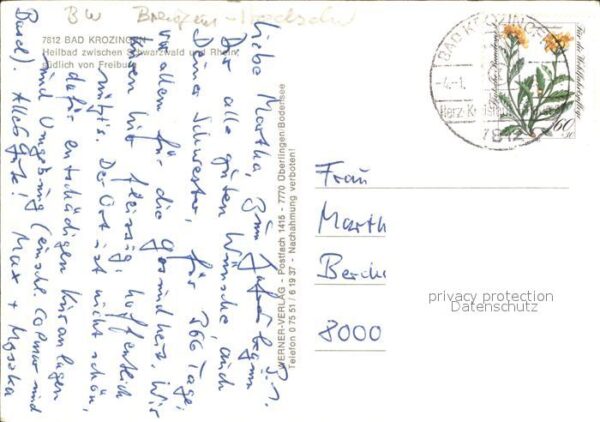 BW Breisgau-Hochschw
7812 BAD KROZINGEN
Heilbad zwischen Schwarzwald und Rhein,
südlich von Freiburg
3.1.
Liebe Martha, zum Jahresbeginn
Dir alle guten Wünsche, auch
Deiner Schwester, für 366 Tage,
vor allem für die Gesundheit. Wir
kuren hier fleissig, hoffentlich
nützt's. Der Ort ist nicht schön,
dafür entschädigen Kuranlagen
und Umgebung (einschl. Colmar und
Basel). Alles Gute! Max +
WERNER-VERLAG - Postfach 1416 - 7770 Überlingen/Bodensee
Telefon 0 75 51 / 6 19 37 - Nachahmung verboten!
BAD KROZINGEN
-4.-1.
Herz-Kreislauf
7812
Für die Wohlfahrtspflege
Deutsche Bundespost
60
Frau
Marth
8000
privacy protection
Datenschutz